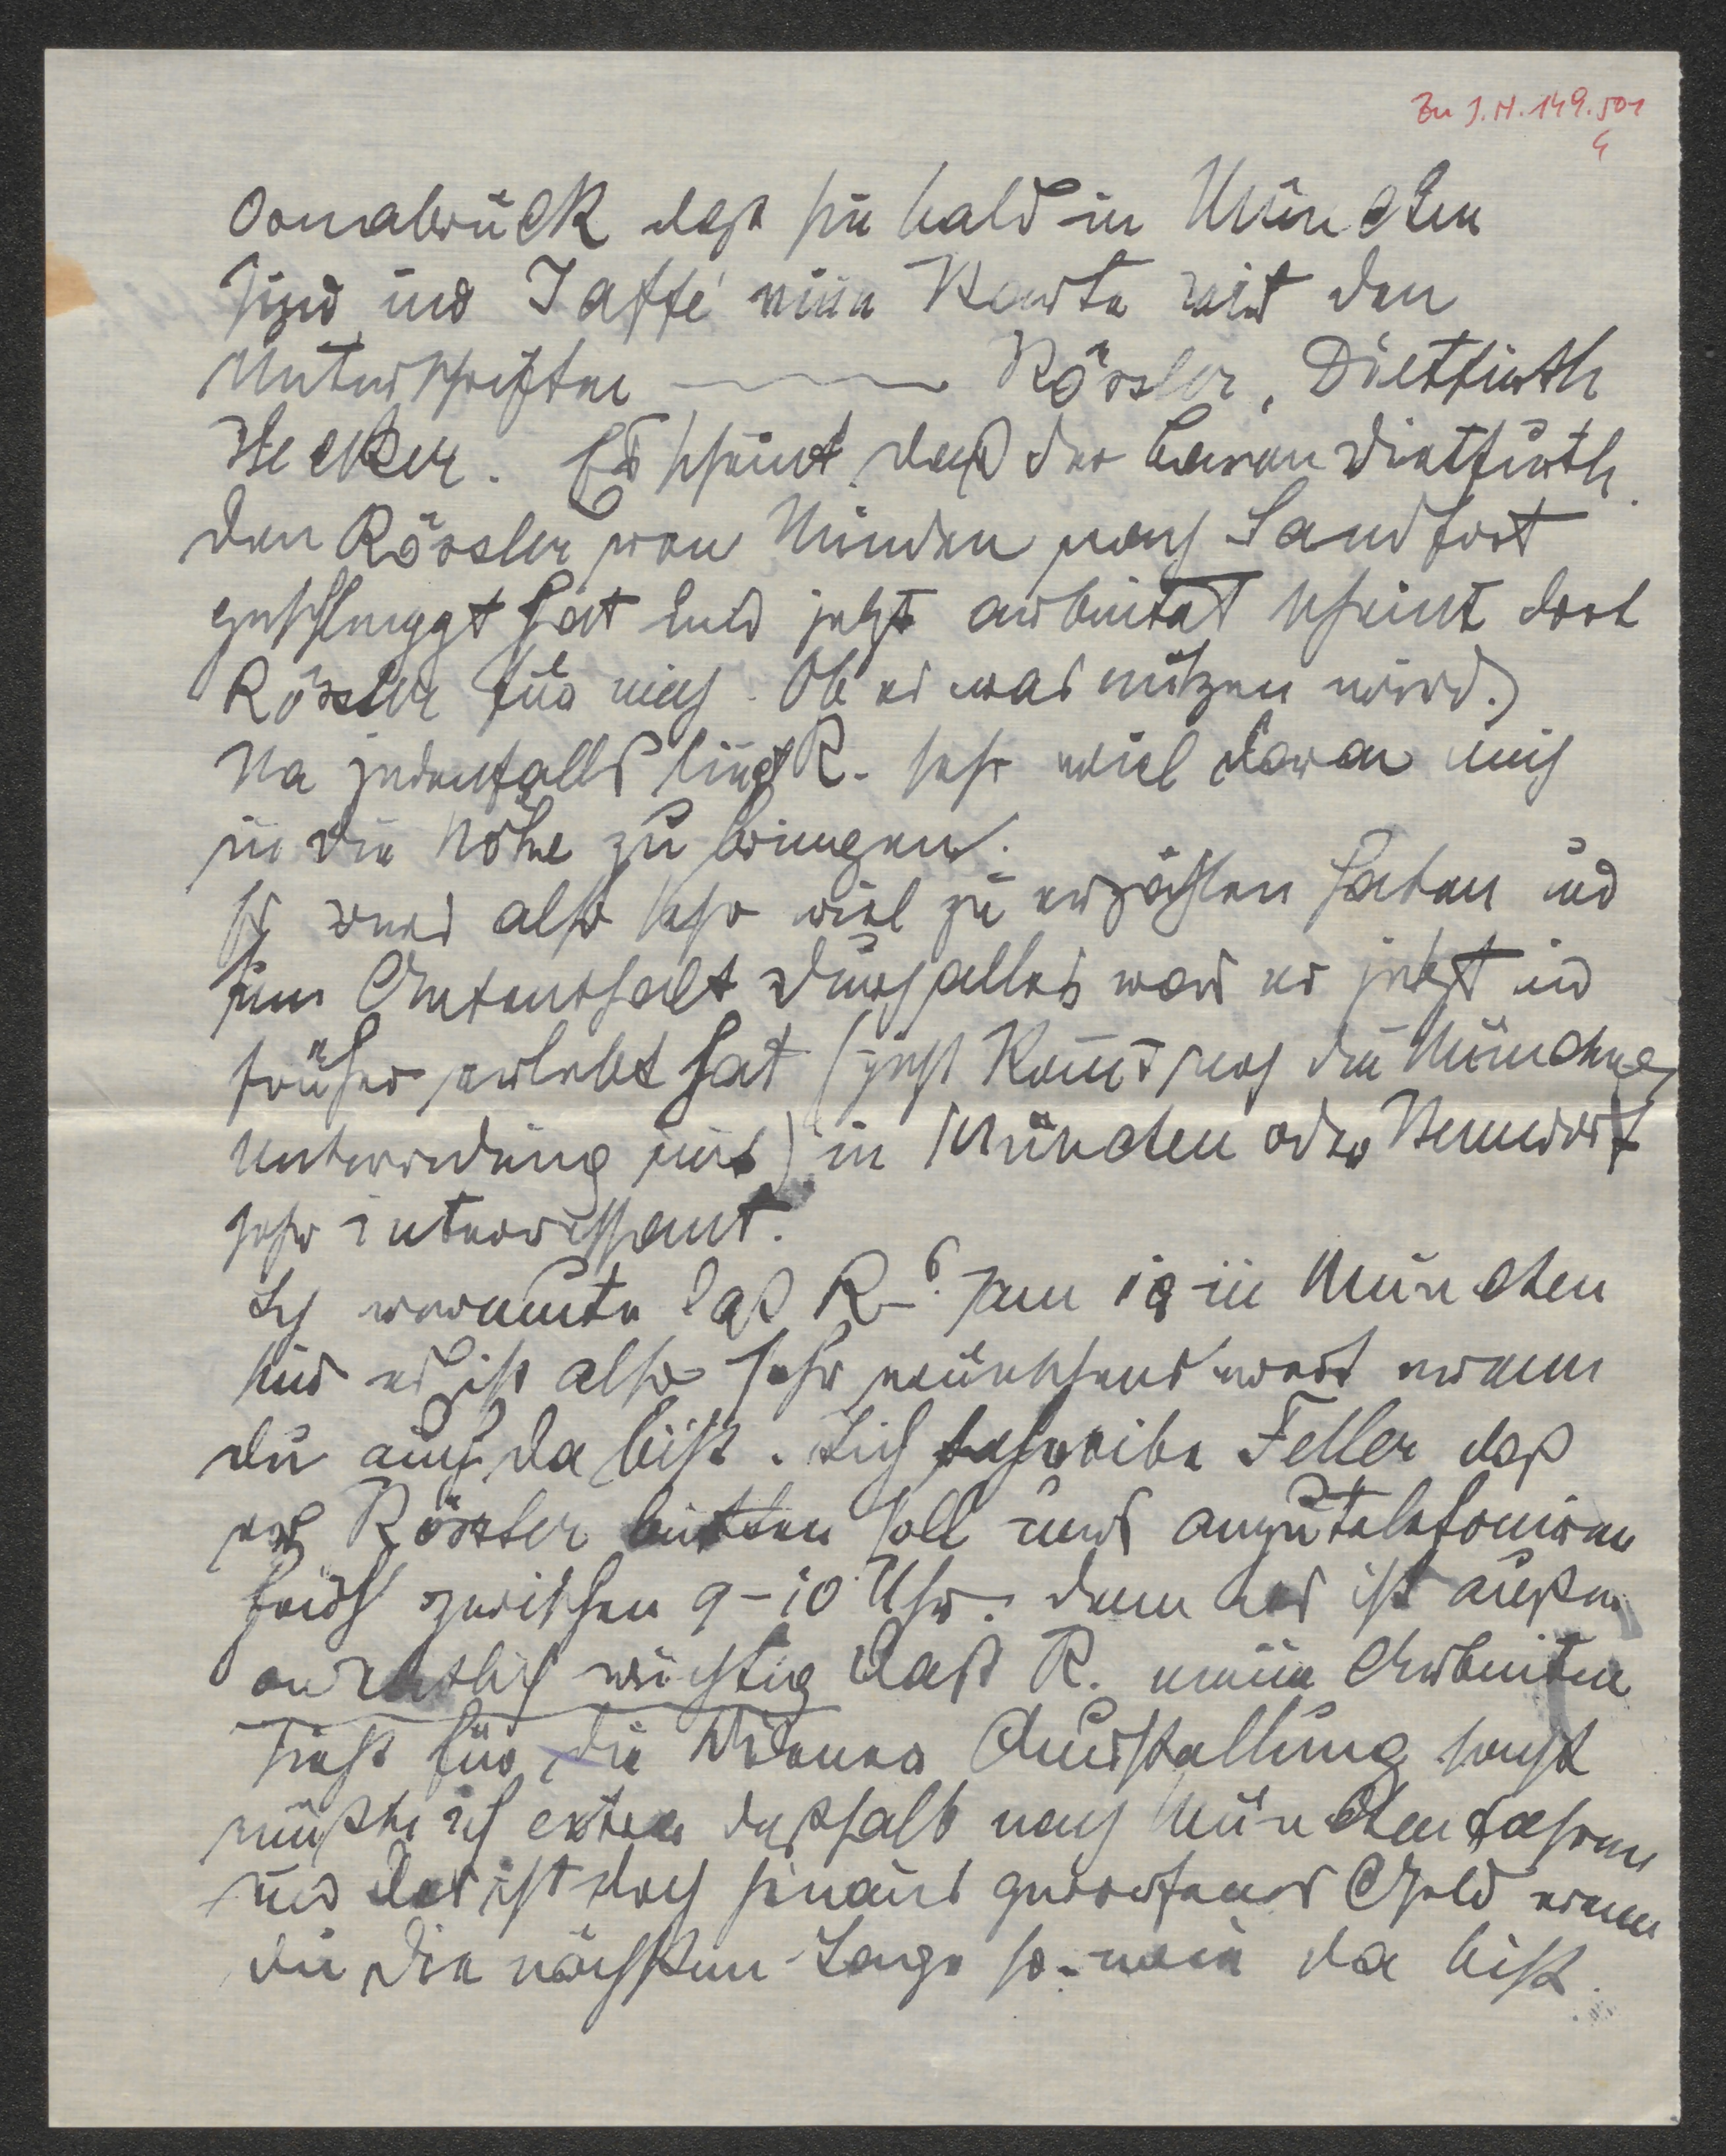 Zu I.N. 149.501
4
Osnabrück daß sie bald in München
sind und Jaffé eine Karte mit den
Unterschriften Rössler, Dietfurth
Hecker. Es scheint daß der Baron Dietfurth
den Rössler von Minden nach Sandfort
geschleppt hat und jetzt arbeitet scheint dort
Rössler für mich. Ob es was nützen wird.)
Na jedenfalls liegt R. sehr viel daran mich
in die Höhe zu bringen.
Er wird also sehr viel zu erzählen haben und
sein Aufenthalt durch alles was er jetzt und
früher erlebt hat (jetzt kommt noch die Münchner
Unterredung) in München oder
sehr interessant.
Ich vermute daß R-s. am 19 in München
und es ist also sehr wünschenswert wenn
du auch da bist. Ich schreibe Feller daß
er Rössler bitten soll uns anzutelefonieren
früh zwischen 9-10 Uhr. denn es ist außer
ordentlich wichtig daß R. meine Arbeiten
sieht für die Wiener Ausstellung sonst
müßte ich extra deßhalb nach München fahren
und das ist doch hinaus geworfenes Geld wenn
du die nächsten Tage so-wie da bist.